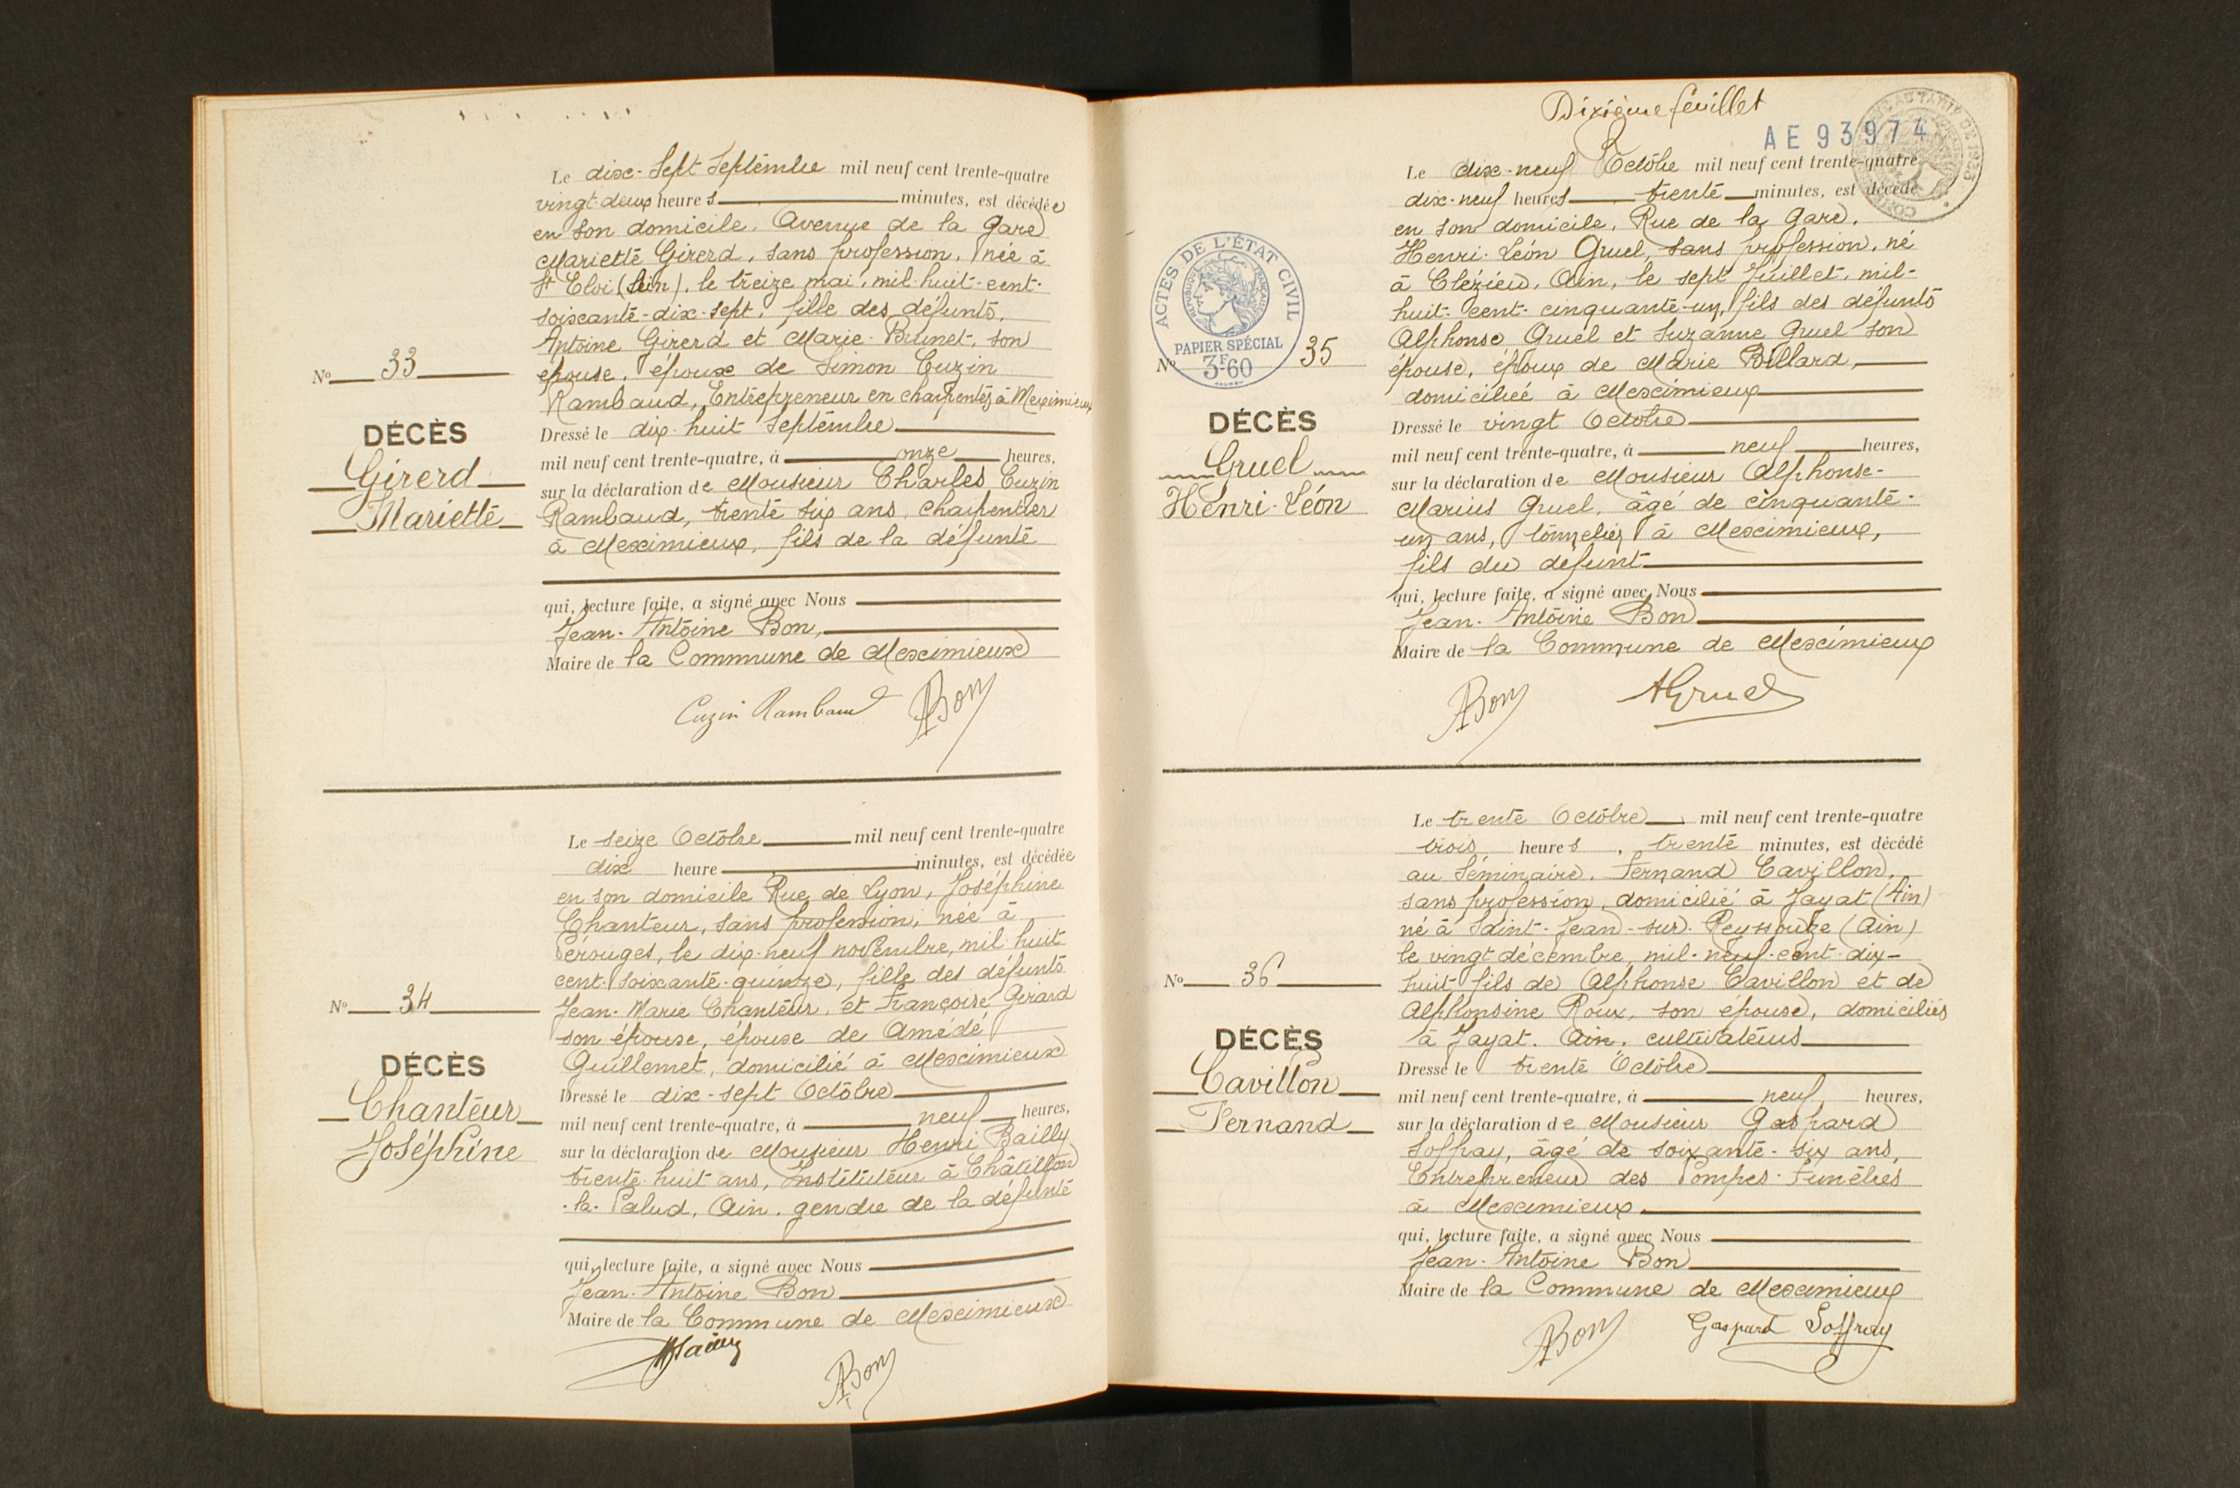 Le dix-sept Septembre mil neuf cent trente-quatre
vingt-deux heures minutes, est décédée
en son domicile, Avenue de la Gare
Mariette Girerd, sans profession, née à
St Eloi (Ain), le treize mai, mil-huit-cent-
soixante-dix-sept, fille des défunts,
Antoine Girerd et Marie Brunet, son
épouse, épouse de Simon Cuzin
Rambaud, Entrepreneur en charpentes à Meximieux
No 33
DÉCÈS
Girerd
Mariette
Dressé le dix-huit Septembre
mil neuf cent trente-quatre, à onze heures,
sur la déclaration de Monsieur Charles Cuzin
Rambaud, trente six ans, charpentier
à Meximieux, fils de la défunte
qui, lecture faite, a signé avec Nous
Jean-Antoine Bon,
Maire de la Commune de Meximieux
Cuzin Rambaud ABon
Le seize Octobre mil neuf cent trente-quatre
dix heure minutes, est décédée
en son domicile Rue de Lyon, Joséphine
Chanteur, sans profession, née à
Pérouges, le dix-neuf novembre, mil huit
cent-soixante-quinze, fille des défunts
Jean-Marie Chanteur, et Françoise Girard
son épouse, épouse de Amédé
Guillemet, domicilié à Meximieux
No 34
DÉCÈS
Chanteur
Joséphine
Dressé le dix-sept Octobre
mil neuf cent trente-quatre, à neuf heures,
sur la déclaration de Monsieur Henri Bailly
trente-huit ans, Instituteur à Châtillon
-la-Palud, Ain, gendre de la défunte
qui, lecture faite, a signé avec Nous
Jean-Antoine Bon
Maire de la Commune de Meximieux
ABon
Dixième feuillet
AE 93974
Le dix-neuf Octobre mil neuf cent trente-quatre
dix-neuf heures trente minutes, est décédé
en son domicile, Rue de la Gare,
Henri-Léon Gruel, sans profession, né
à Clézieu, Ain, le sept Juillet, mil-
huit-cent-cinquante-un, fils des défunts
Alphonse Gruel et Suzanne Gruel son
épouse, époux de Marie Billard,
domiciliée à Meximieux
ACTES DE L'ÉTAT CIVIL
RÉPUBLIQUE FRANÇAISE
PAPIER SPÉCIAL
3F60
No 35
DÉCÈS
Gruel
Henri-Léon
Dressé le vingt Octobre
mil neuf cent trente-quatre, à neuf heures,
sur la déclaration de Monsieur Alphonse-
Marius Gruel, âgé de cinquante-
un ans, tonnelier à Meximieux,
fils du défunt
qui, lecture faite, a signé avec Nous
Jean-Antoine Bon
Maire de la Commune de Meximieux
ABon AGruel
Le trente Octobre mil neuf cent trente-quatre
trois heures, trente minutes, est décédé
au Séminaire, Fernand Cavillon,
sans profession, domicilié à Jayat (Ain)
né à Saint-Jean-sur-Reyssouze (Ain)
le vingt décembre, mil-neuf-cent-dix-
huit fils de Alphonse Cavillon et de
Alphonsine Roux, son épouse, domiciliés
à Jayat, Ain, cultivateurs
No 36
DÉCÈS
Cavillon
Fernand
Dressé le trente Octobre
mil neuf cent trente-quatre, à neuf heures,
sur la déclaration de Monsieur Gaspard
Soffray, âgé de soixante-six ans,
Entrepreneur des Pompes-Funèbres
à Meximieux
qui, lecture faite, a signé avec Nous
Jean-Antoine Bon
Maire de la Commune de Meximieux
ABon Gaspard Soffray